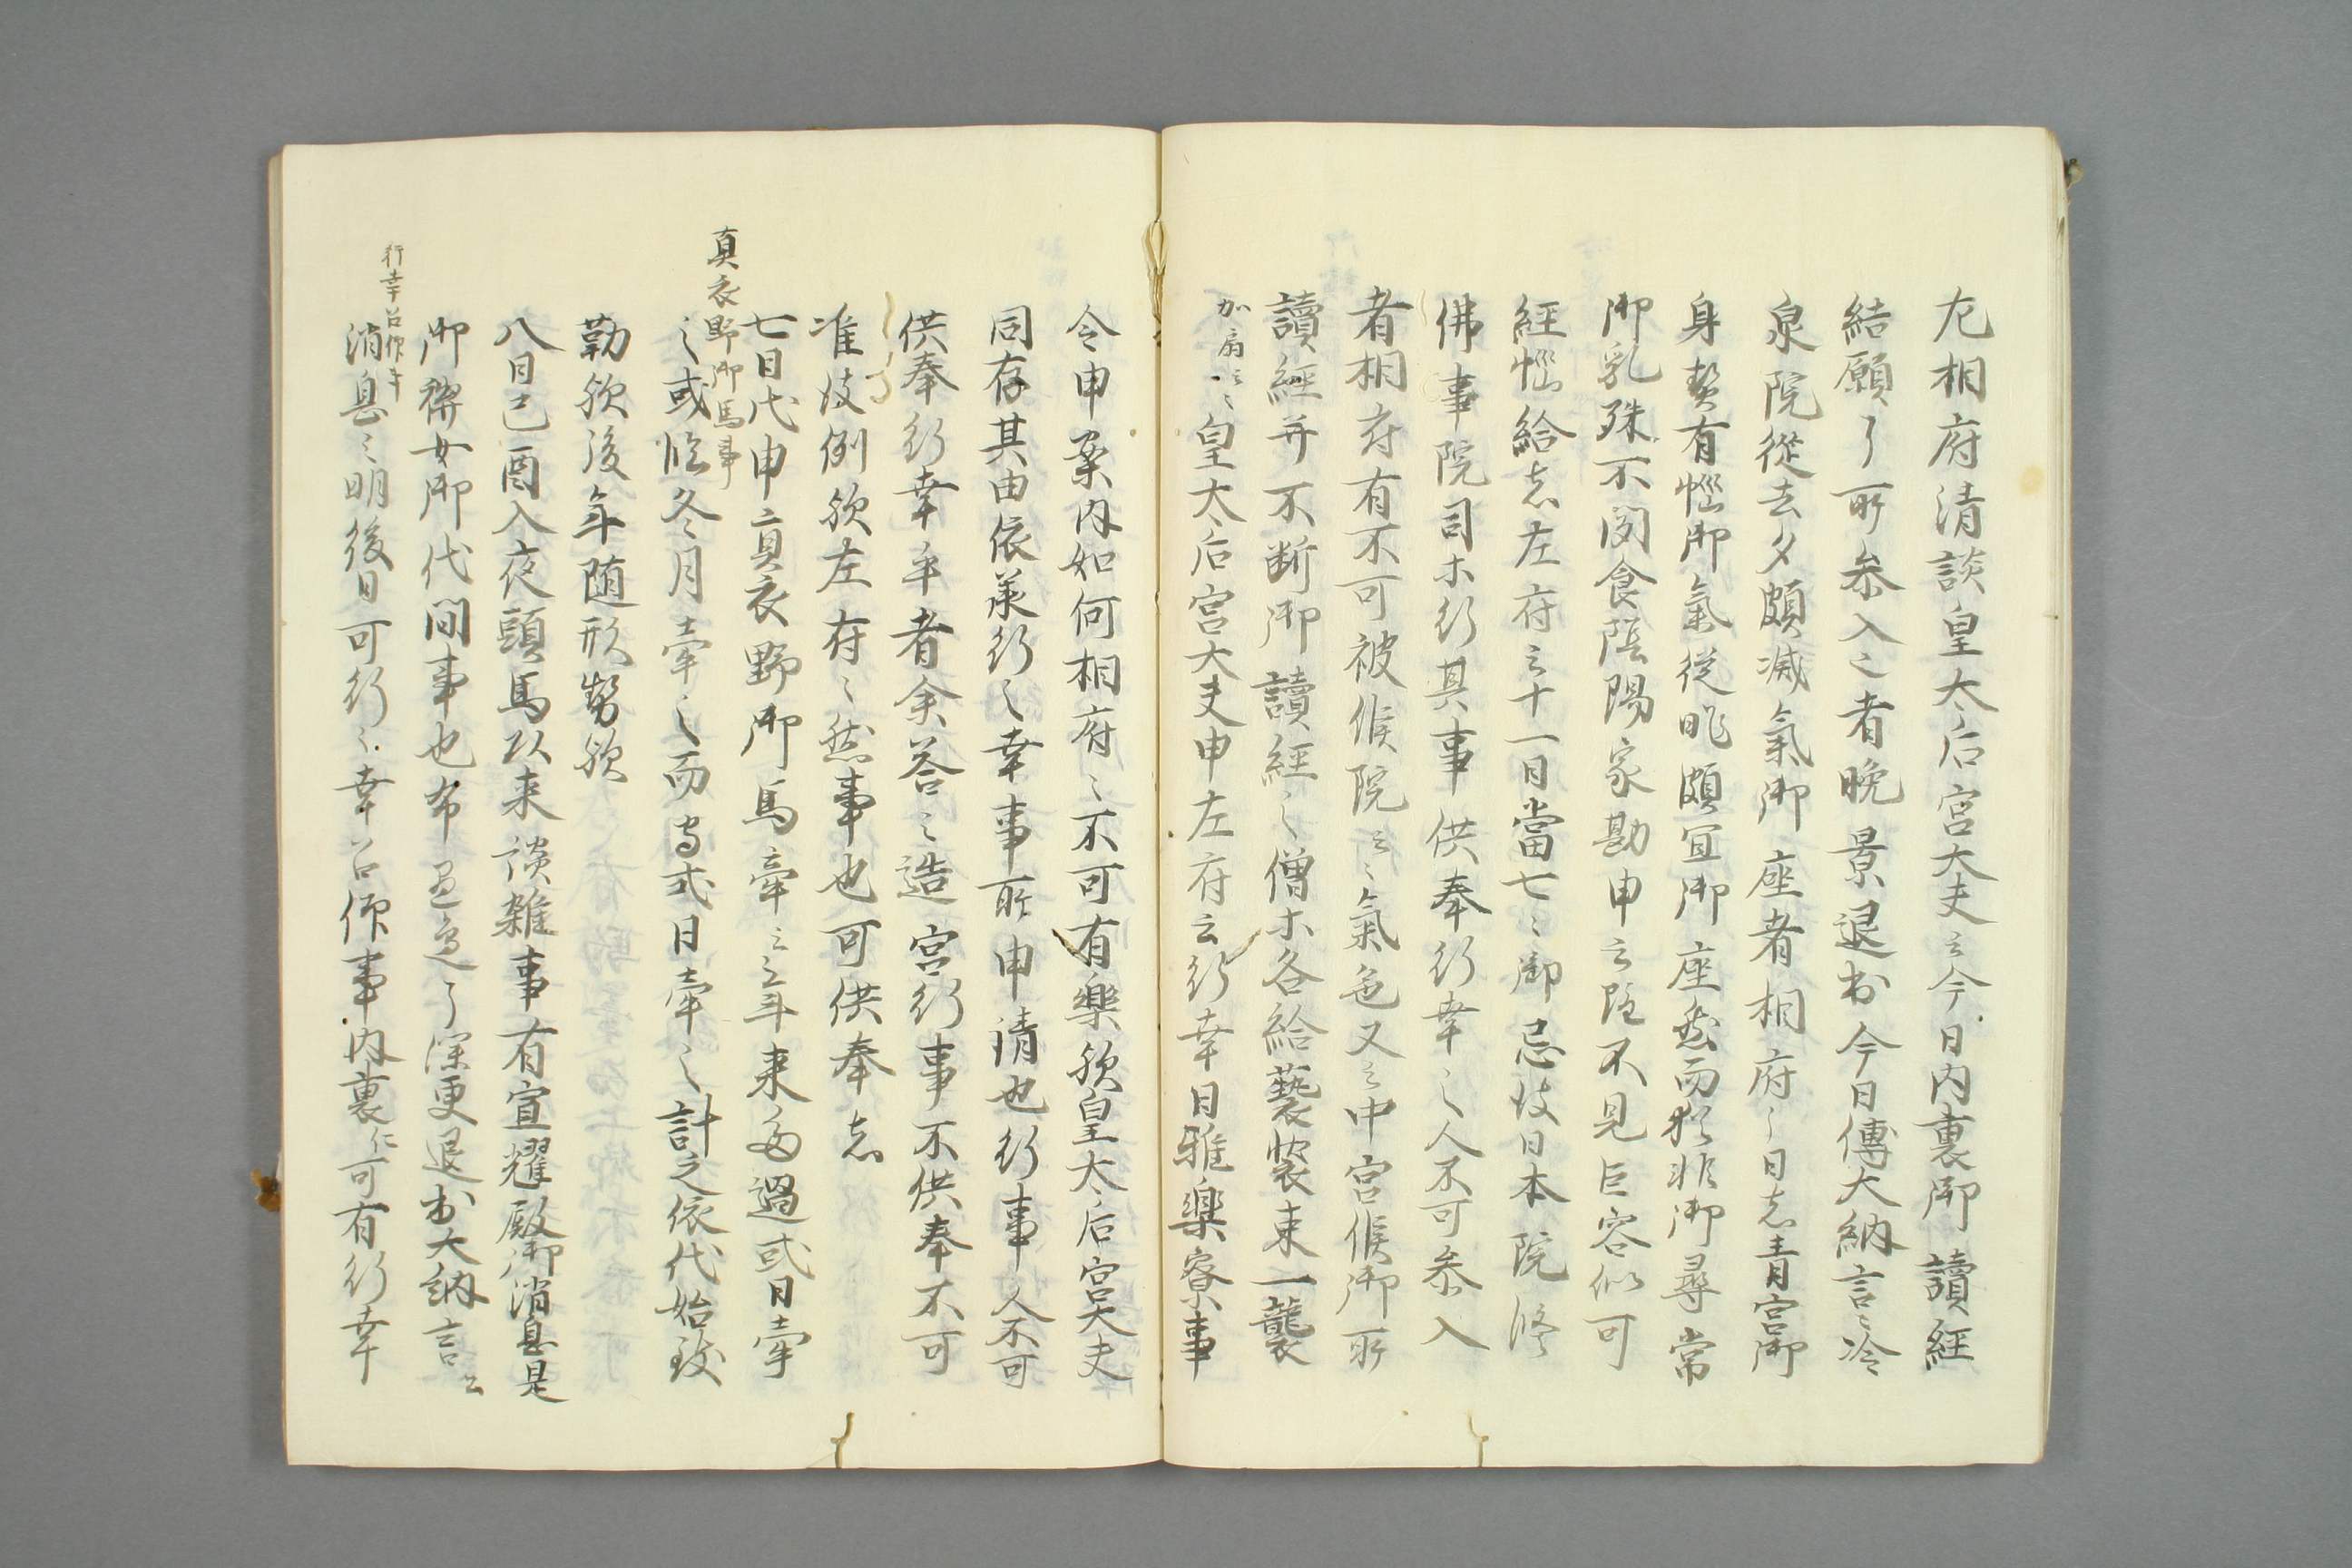 左相府清談皇太后宮大夫云今日内裏御讀經
結願了所参入之者晩景退出今日傳大納言云冷
泉院從去夕頗減氣御座者相府云日者青宮御
身熱有惱御氣從昨頗宜御座然而猶非御尋常
御乳殊不聞食陰陽家勘申云 不見巨害似可
經惱給者左府云十一日當七々御忌彼日本院修
佛事院司等行其事供奉行幸之人不可参入
者相府有不可被候院云々氣色又云中宮候御所
讀經并不断御讀經之僧等各給褻裝束一襲
加扇云々皇太后宮大夫申左府云行幸日雅樂寮事
令申案内如何相府云不可有樂歟皇太后宮大夫
同存其由依兼行之幸事所申請也行事人不可
供奉行幸乎者余答云造宮行事不供奉不可
准彼例歟左府云然事也可供奉者
真衣野御馬事
七日戊申真衣野御馬牽云云年来多過式日牽
之或臨冬月牽之而守式日牽之計之依代始致
勤歟後年随形勢歟
八日己酉入夜頭馬以来談雜事有宣耀殿御消息是
御禊女御代間事也 了深更退出大納言公
行幸召仰事
消息云明後日可行々幸召仰事内裏仁可有行幸